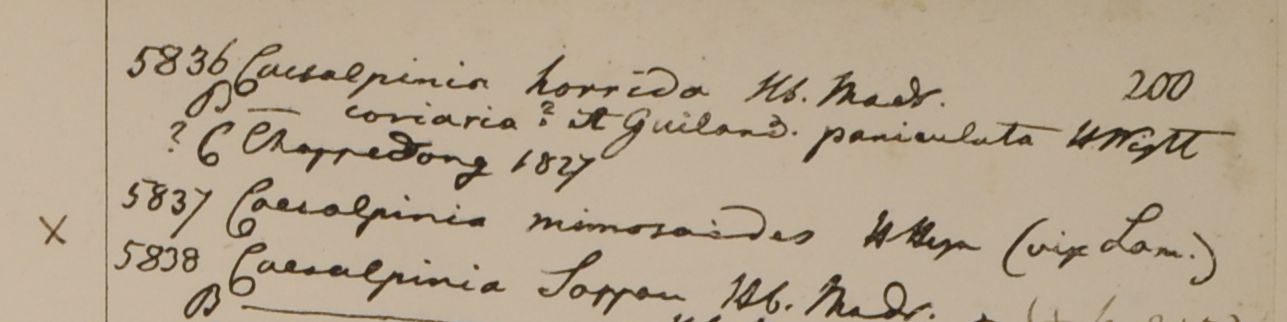 5836 Caesalpinia horrida Hb. Madr. 200
B — coriaria? et Guiland. paniculata HWight
? C Chappedong 1827
5837 Caesalpinia mimosaides HHeyn (vix Lam.)
X
5838 Caesalpinia Sappan Hb. Madr.
B